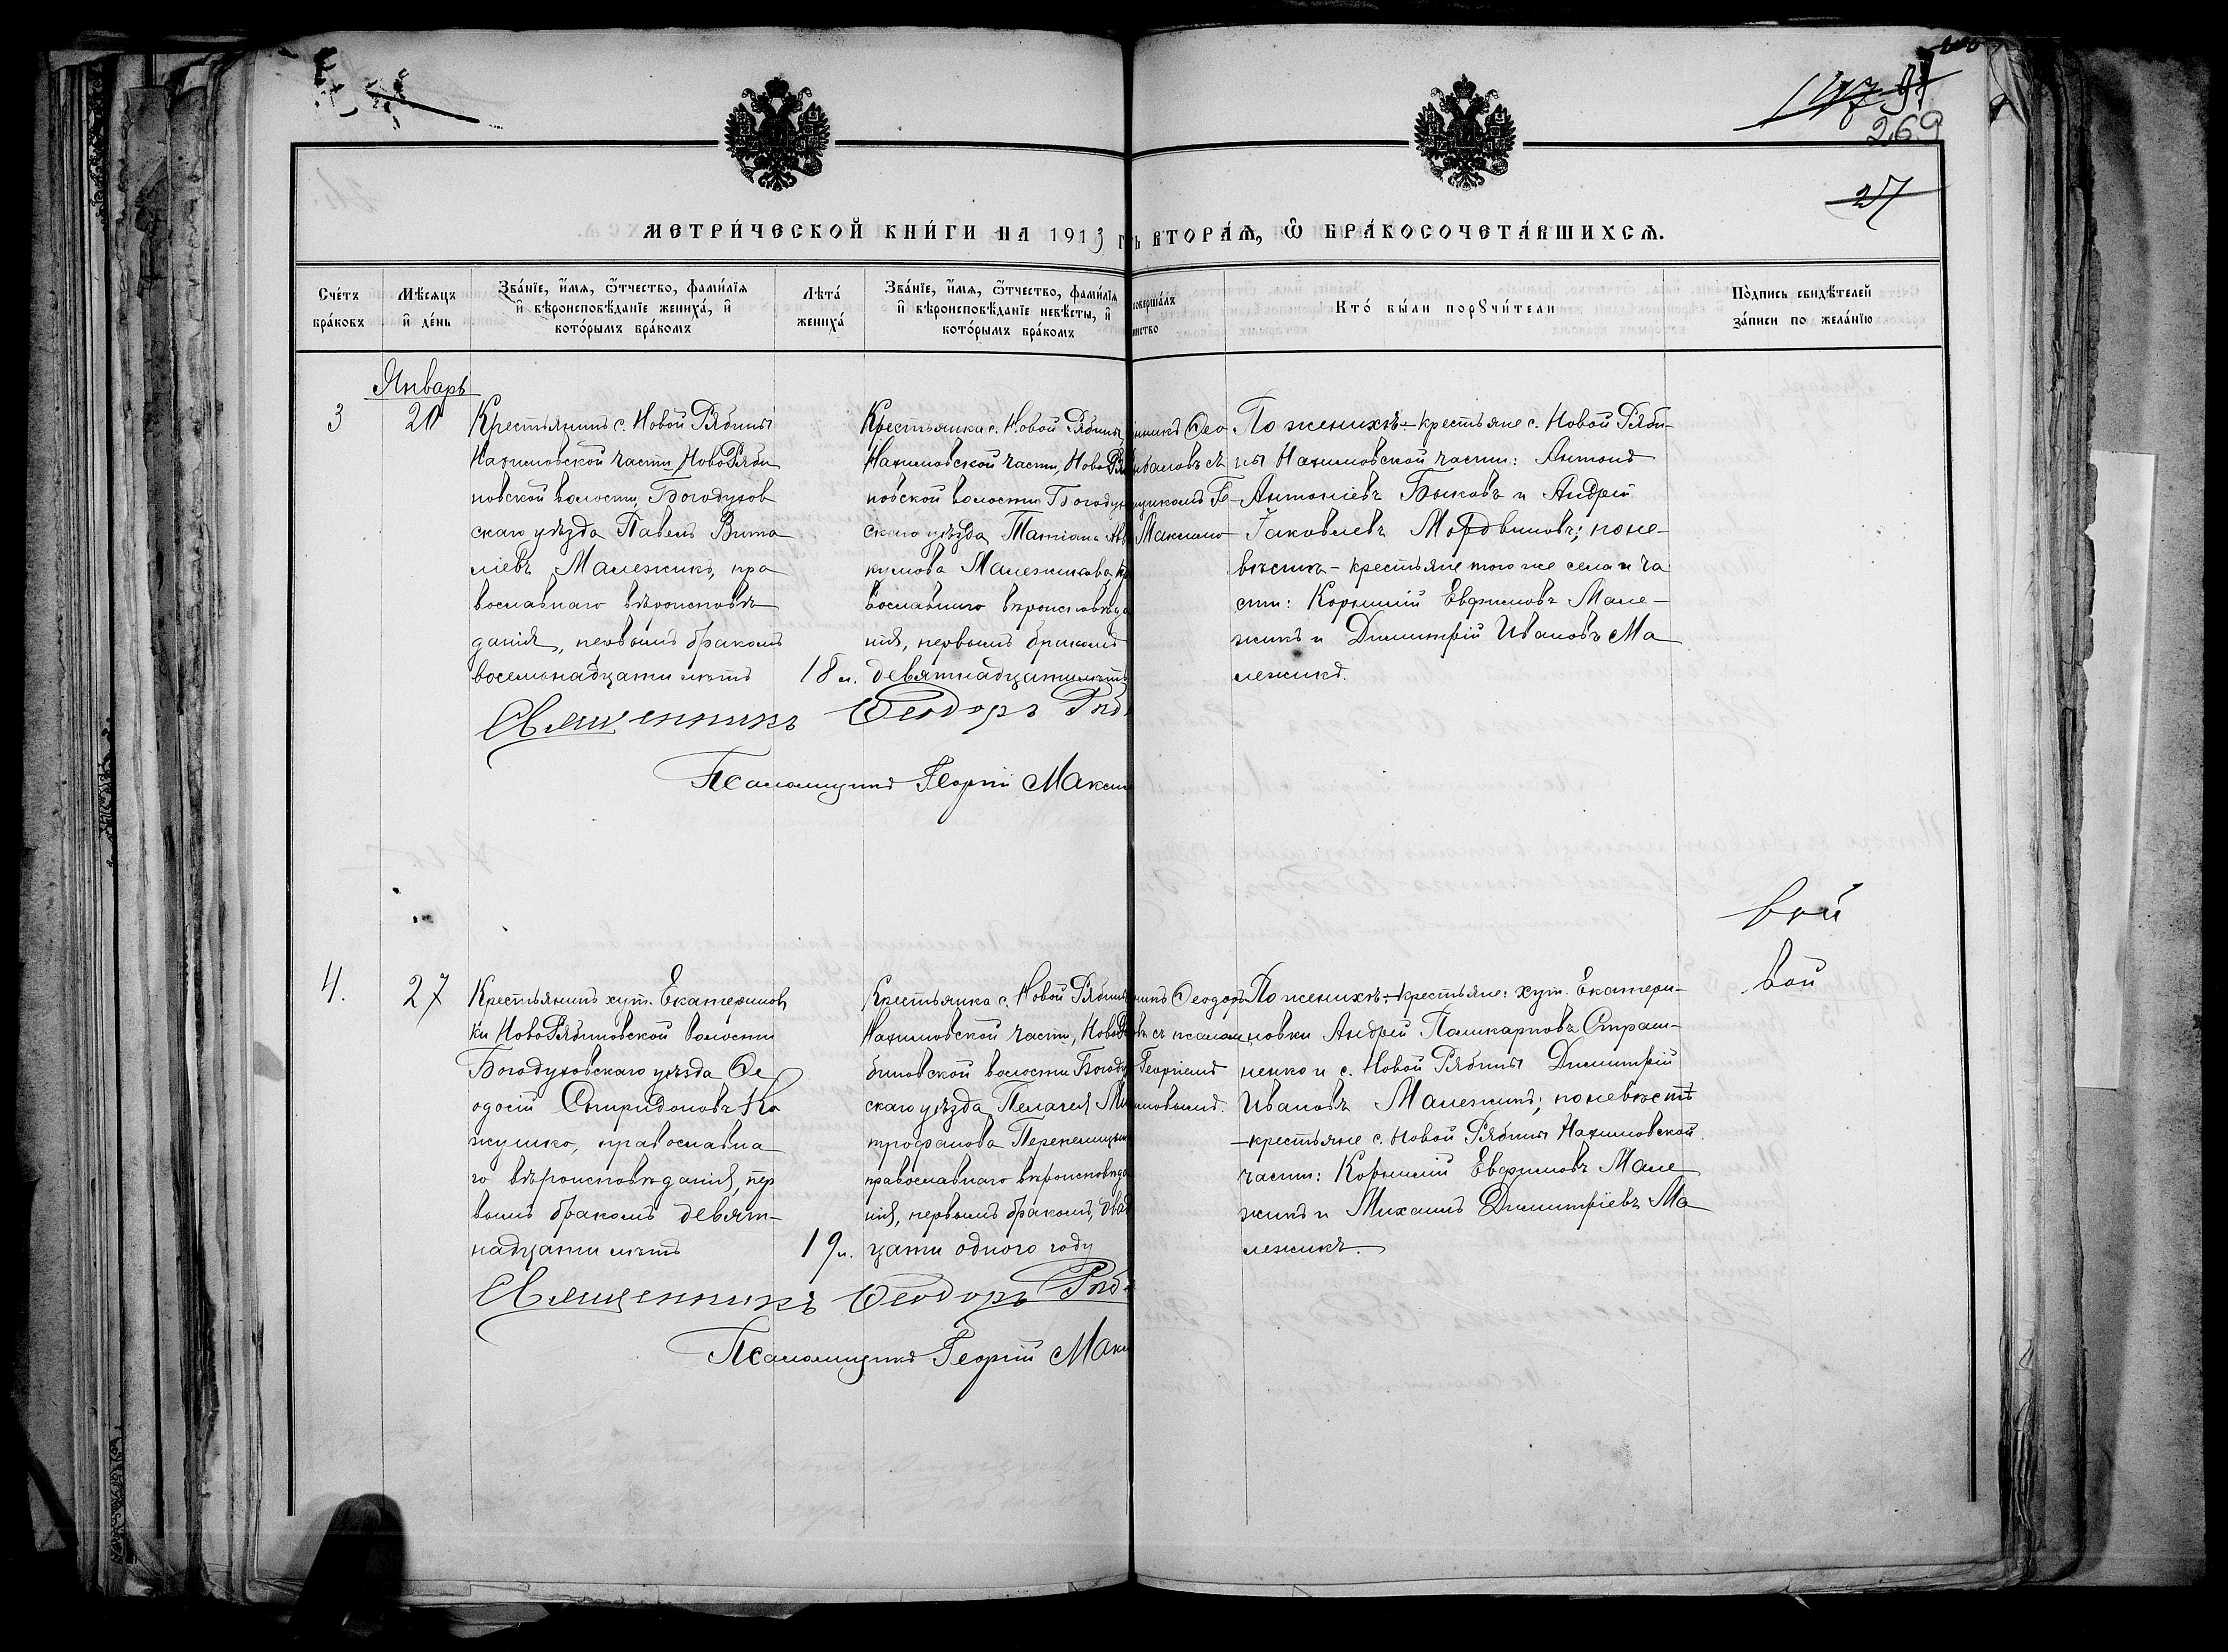 147 91
269
27
МЕТРИ́ЧЕСКОЙ КНИ́ГИ НА 1913 Г
Ъ ВТОРА́Я, Ѡ БРАКОСОЧЕТА́ВШИХСЯ.
Сче́тъ бра́ковъ
Мѣ́сяцъ и҆ де́нь
Зва́нїе, и҆́мя, ѻ҆́тчество, фами́лїя
и҆ вѣроисповѣ́данїе жениха́, и҆
кото́рымъ бра́комъ
Лѣта́ жениха́
Зва́нїе, и҆́мя, ѻ҆́тчество, фами́лїя
и҆ вѣроисповѣ́данїе невѣ́сты, и҆
кото́рымъ бра́комъ
соверша́лъ
инство
Кто́ бы́ли порꙋчи́тели
По́дпись свидѣ́телей
за́писи по жела́нїю
Январь
3
20
Крестьянинъ с. Новой Рябины
Нахимовской части, НовоРяби
новской волости, Богодухов
скаго уѣзда Павелъ Вита
ліевъ Малежикъ, пра
вославнаго вѣроисповѣ
данія, первымъ бракомъ
восемьнадцати лѣтъ
18 л.
Крестьянка с. Новой Рябины,
Нахимовской части, НовоРя
новской волости Богоду
скаго уѣзда, Татіана Ав
кумова Малежикова, п
вославнаго вѣроисповѣда
нія, первымъ бракомъ
девятнадцати лѣтъ
нникъ Ѳео
ибановъ съ
щикомъ Ге
Максимо
По женихѣ: крестьяне с. Новой Ряби-
ны Нахимовской части: Антонъ
Антоніевъ Быковъ и Андрей
Іаковлевъ Мордвиновъ; по не-
вѣстѣ - крестьяне того же села и ча
сти: Корнилій Евфимовъ Мале-
жикъ и Димитрій Ивановъ Ма
лежикъ.
Священникъ Ѳеодоръ
Псаломщикъ Георгій Макси
4.
27
Крестьянинъ хут. Екатеринов
ки НовоРябиновской волости
Богодуховскаго уѣзда Ѳе
одосій Спиридоновъ Ко
жушко, православна
го вѣроисповѣданія, пер
вымъ бракомъ девят-
надцати лѣтъ
19 л.
Крестьянка с. Новой Рябины
Нахимовской части, НовоРя
биновской волости Богоду
скаго уѣзда, Пелагея Ми
трофанова Перепелицына
православнаго вѣроисповѣда
нія, первымъ бракомъ, двад
цати одного году
никъ Ѳеодоръ
въ съ псалом
Георгіемъ
имовымъ.
По женихѣ: крестьяне: хут. Екатери-
новки Андрей Поликарповъ Страш-
ненко и с. Новой Рябины Димитрій
Ивановъ Малежикъ; по невѣстѣ
- крестьяне с. Новой Рябины Нахимовской
части: Корнилій Евфимовъ Мале
жикъ и Михаилъ Димитріевъ Ма
лежикъ.
вой
вой
Священникъ Ѳеодоръ
Псаломщикъ Георгій Макс